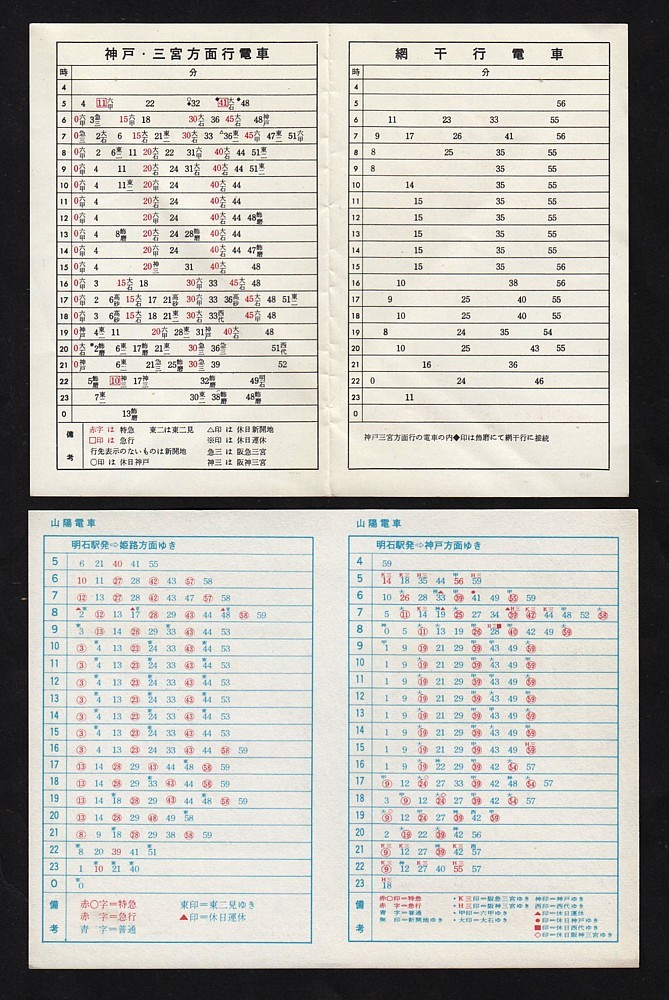 神戸・三宮方面行電車
時 分
4
5 4 11六甲 22 ○32 ◆41大石 ◆48
6 0六甲 3急三 15六甲 18 30大石 36 45大石 48神戸
7 0急三 2大石 6 15大石 21東二 30大石 33 △36東二 45六甲 47東二 51六甲
8 0六甲 2 6東二 11 20大石 22 31六甲 40大石 44 51東二
9 0六甲 4 11 20大石 24 31大石 40大石 44 51東二
10 0六甲 4 11東二 20六甲 24 40大石 44
11 0六甲 4 20六甲 24 40大石 44
12 0六甲 4 20六甲 24 40大石 44 48飾磨
13 0六甲 4 8飾磨 20大石 24 28飾磨 40大石 44
14 0六甲 4 20六甲 24 40大石 44 47飾磨
15 0六甲 4 20神三 31 40大石 48
16 0六甲 3 15大石 18 30六甲 33 45大石 48
17 0六甲 2 6高砂 15大石 17 21高砂 30六甲 33 36高砂 45大石 48 51東二
18 0六甲 3 6高砂 15大石 18 21東二 30大石 33西代 45六甲 48
19 0神戸 4東二 11 20六甲 28東二 31神戸 40大石 48
20 0大石 2飾磨 6東二 17飾磨 21東二 30急三 36急三 51西代
21 0神戸 6東二 21急三 25飾磨 30急三 39 52
22 5飾磨 10神三 17神三 32飾磨 49明石
23 7東二 30東二 38飾磨 48飾磨
0 13飾磨
備考
赤字は 特急 東二は東二見 △印は 休日新開地
□印は 急行 ※印は 休日運休
行先表示のないものは新開地 急三は 阪急三宮
○印は 休日神戸 神三は 阪神三宮
網干行電車
時 分
4
5 56
6 11 23 33 55
7 9 17 26 41 56
8 8 25 35 55
9 8 35 55
10 14 35 55
11 15 35 55
12 15 35 55
13 15 35 55
14 15 35 55
15 15 35 56
16 10 38 56
17 9 25 40 55
18 10 25 40 55
19 8 24 35 54
20 10 25 43 55
21 16 36
22 0 24 46
23 11
0
神戸三宮方面行の電車の内◆印は飾磨にて網干行に接続
山陽電車
明石駅発⇨姫路方面ゆき
5 6 21 40 41 55
6 10 11 27 28 42 43 57 58
7 12 13 27 28 42 43 47 57 58
8 2 12 13 17 28 29 43 44 48 58 59
9 3 13 14 28 29 33 43 44 53
10 3 4 13 23 24 33 43 44 53
11 3 4 13 23 24 33 43 44 53
12 3 4 13 23 24 33 43 44 53
13 3 4 13 23 24 33 43 44 53
14 3 4 13 23 24 33 43 44 53
15 3 4 13 23 24 33 43 44 53
16 3 4 13 23 24 33 43 44 58 59
17 13 14 28 29 43 44 58 59
18 13 14 28 29 33 43 44 48 58 59
19 13 14 18 28 29 43 44 48 58 59
20 13 14 28 29 48 49 58
21 8 9 18 28 29 38 58 59
22 8 20 39 41 51
23 1 10 21 40
0 0
備考
赤○字=特急 東印=東二見ゆき
赤 字=急行 ▲印=休日運休
青 字=普通
山陽電車
明石駅発⇨神戸方面ゆき
4 59
5 14 18 35 44 56 59
6 10 26 28 33 39 41 49 55 59
7 5 11 14 19 25 27 34 39 42 44 48 52 58
8 0 5 11 13 19 26 28 40 42 49 59
9 1 9 19 21 29 39 43 49 59
10 1 9 19 21 29 39 43 49 59
11 1 9 19 21 29 39 43 49 59
12 1 9 19 21 29 39 43 49 59
13 1 9 19 21 29 39 43 49 59
14 1 9 19 21 29 39 43 49 59
15 1 9 19 21 29 39 43 49 59
16 1 9 19 22 29 39 42 54 57
17 9 12 24 27 33 39 42 48 54 57
18 3 9 12 24 27 33 39 42 54 57
19 9 12 24 27 39 42 59
20 2 19 22 39 42 56
21 9 12 27 39 42 57
22 9 12 27 40 55 57
23 18
備考
赤○印=特急 ・K三印=阪急三宮ゆき 神印=神戸ゆき
赤 字=急行 ・H三印=阪神三宮ゆき 西印=西代ゆき
青 字=普通 ・甲印=六甲ゆき ▲印=休日運休
無 印=新開地ゆき ・大印=大石ゆき ●印=休日神戸ゆき
■印=休日西代ゆき
○印=休日阪神三宮ゆき